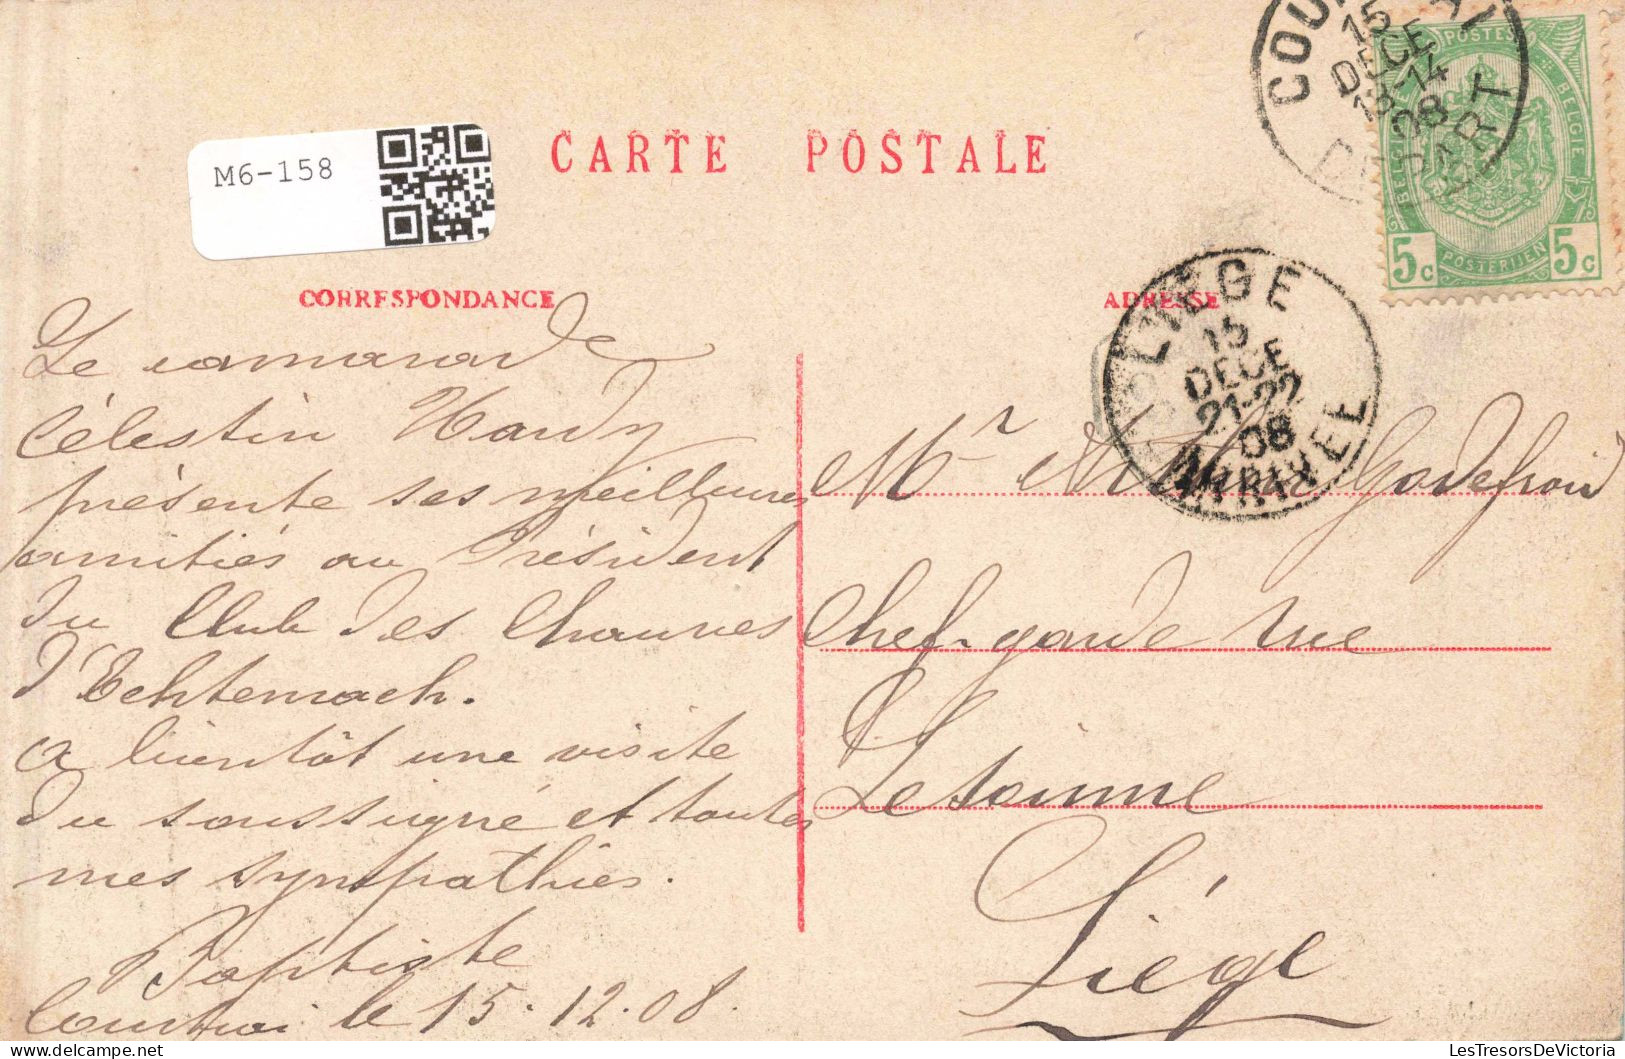 M6-158
CARTE POSTALE
15
DECE
13-14
08
DEPART
POSTES
BELGIQUE
BELGIE
5c 5c
POSTERIJEN
CORRESPONDANCE
ADRESSE
LIEGE
15
DECE
21-22
08
ARRIVEE
Le camarade
Célestin Hardy
présente ses meilleures
amitiés au Président
du Club des Chauves
d'Echternach.
a bientôt une visite
du soussigné et toutes
mes sympathies.
Baptiste
Courtrai le 15.12.08.
Mr Godefroid
Chef-garde rue
Lesoinne
Liége
LesTresorsDeVictoria
delcampe.net